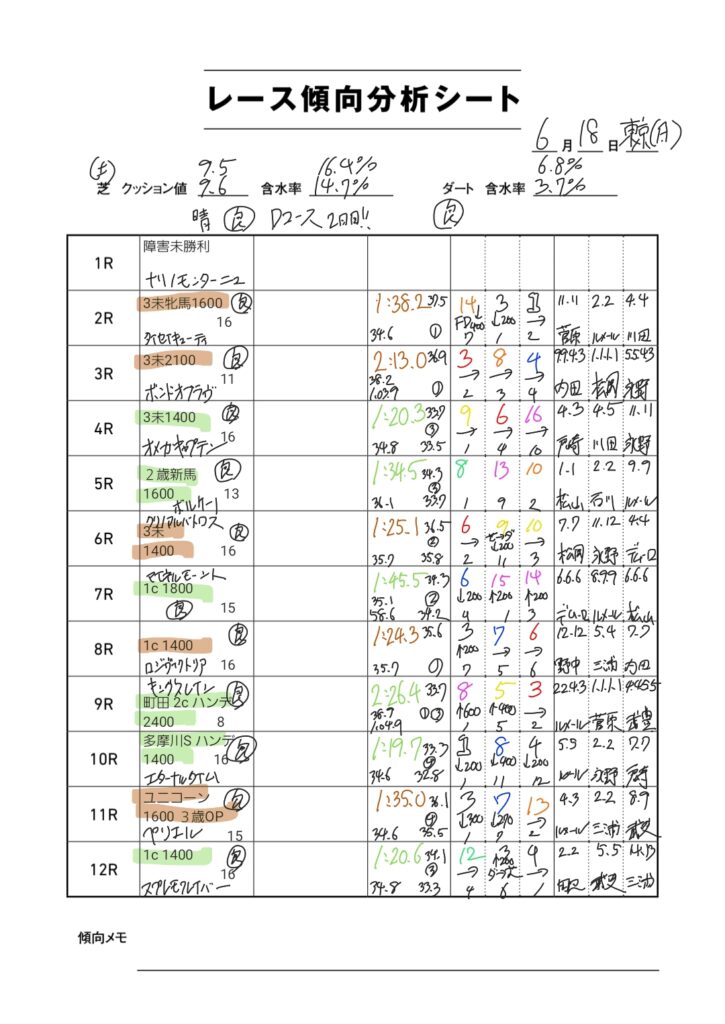 レース傾向分析シート
6月 18日 東京(日)
(土) 9.5 16.4% 6.8%
芝 クッション値 9.6 含水率 14.7% ダート 含水率 3.7%
晴 良 Dコース 2日目!! 良
1R 障害未勝利
ナリノモンターニュ
2R 3未牝馬1600 良 1:38.2 37.5 14 3 1 11.11 2.2 4.4
16 FD400 ↓200 →
タイセイキューティ 34.6 ① 7 1 2 菅原 ルメール 川田
3R 3未2100 良 2:13.0 36.9 3 8 4 9.9.4.3 1.1.1.1 5.5.4.3
11 38.2 → → →
ボンドオブラヴ 1.03.9 ① 2 3 4 内田 松岡 永野
4R 3未1400 良 1:20.3 33.7 9 6 16 4.3 4.5 11.11
16 ③ → → →
オメガキャプテン 34.8 33.5 1 4 10 戸崎 川田 永野
5R 2歳新馬 良 1:34.5 34.3 8 13 10 1.1 2.2 9.9
1600 13
ボルケーノ 36.1 33.7 1 9 2 松山 石川 ルメール
クリノアルバトロス
6R 3未 良 1:25.1 36.5 6 9 10 7.7 11.12 4.4
1400 16 ② → ↓200 →
35.7 35.8 2 11 3 松岡 永野
7R 1c 1800 1:45.5 34.3 6 15 14 6.6.6 8.9.9 6.6.6
良 15 35.1 ② ↓200 ↑200 ↑200
58.6 34.2 4 1 3 ルメール 松山
8R 1c 1400 良 1:24.3 35.6 3 7 6 12.12 5.4 7.7
16 ↑200 → →
ロジヴィクトリア 35.7 ① 7 5 6 野中 三浦 内田
キングズレイン
9R 町田 2c ハンデ 良 2:26.4 33.7 8 5 3 2.2.4.3 1.1.1.1 4.4.5.5
2400 8 38.7 ↑600 ↑400 →
1.04.9 1 5 2 ルメール 菅原 武豊
10R 多摩川S ハンデ 良 1:19.7 33.3 1 8 4 5.5 2.2 7.7
1400 16 ↓200 ↓400 ↓200
エターナルタイム 34.6 32.8 1 11 12 ルメール 永野 戸崎
11R ユニコーン 良 1:35.0 36.1 3 7 13 4.3 2.2 8.9
1600 3歳OP ↓300 ↓270 →
ペリエール 15 34.6 35.5 1 7 2 ルメール 三浦 武史
12R 1c 1400 良 1:20.6 34.1 12 3 4 2.2 5.5 14.13
16 ③ → ↑200 →
スプレモフレイバー 34.8 33.3 4 6 1 武史 三浦
傾向メモ